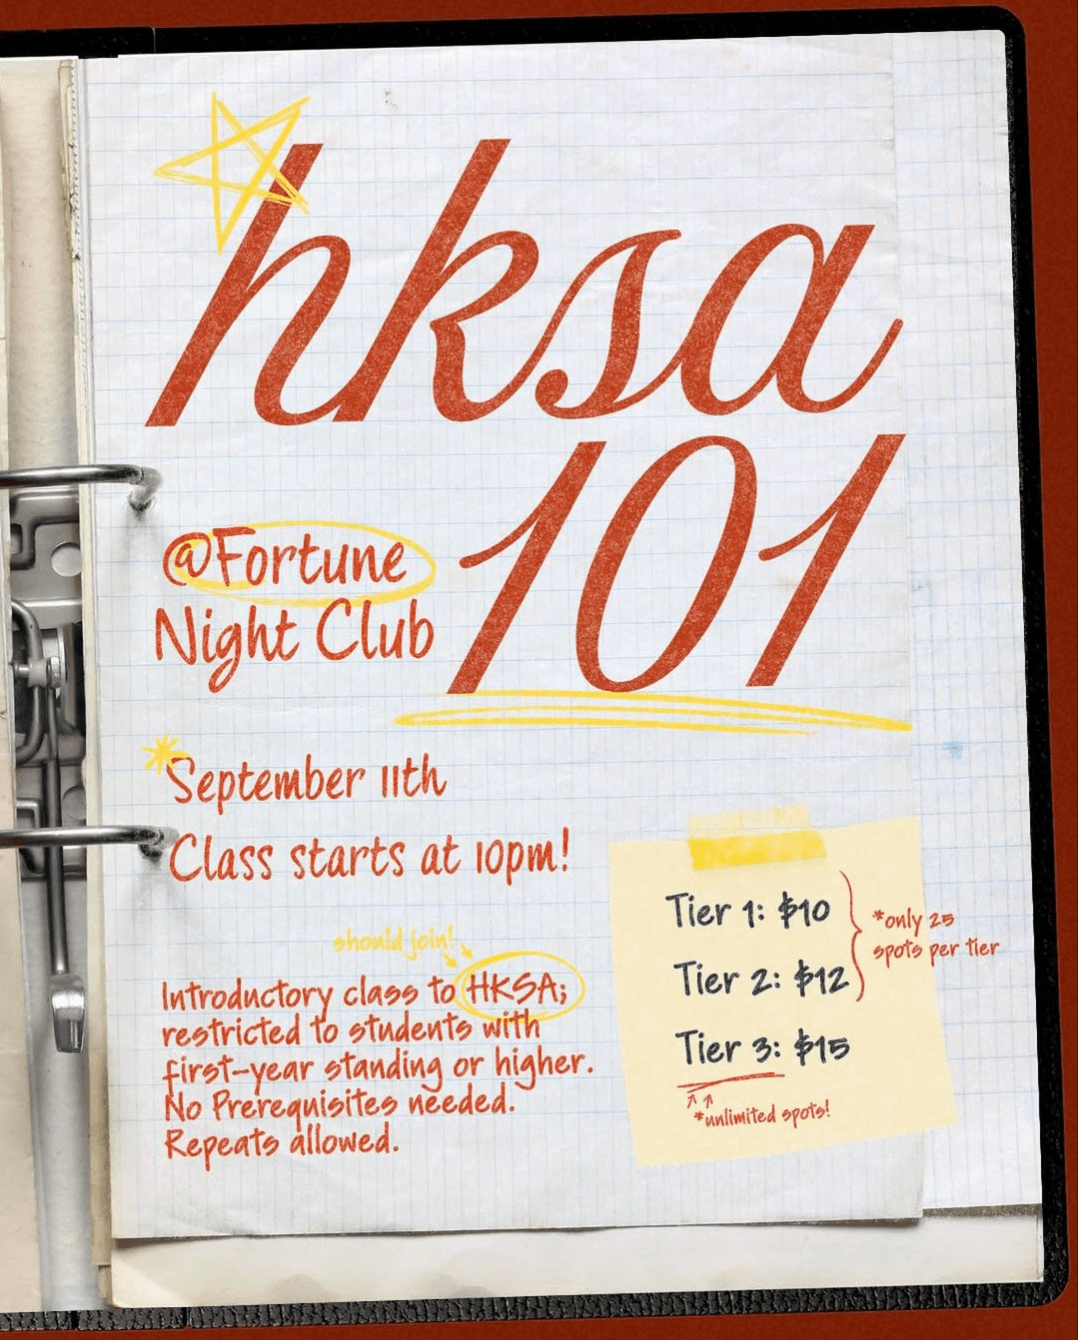 hksa
101
@Fortune
Night Club
*September 11th
Class starts at 10pm!
should join!
Introductory class to HKSA;
restricted to students with
first-year standing or higher.
No Prerequisites needed.
Repeats allowed.
Tier 1: $10
Tier 2: $12
*only 25
spots per tier
Tier 3: $15
*unlimited spots!